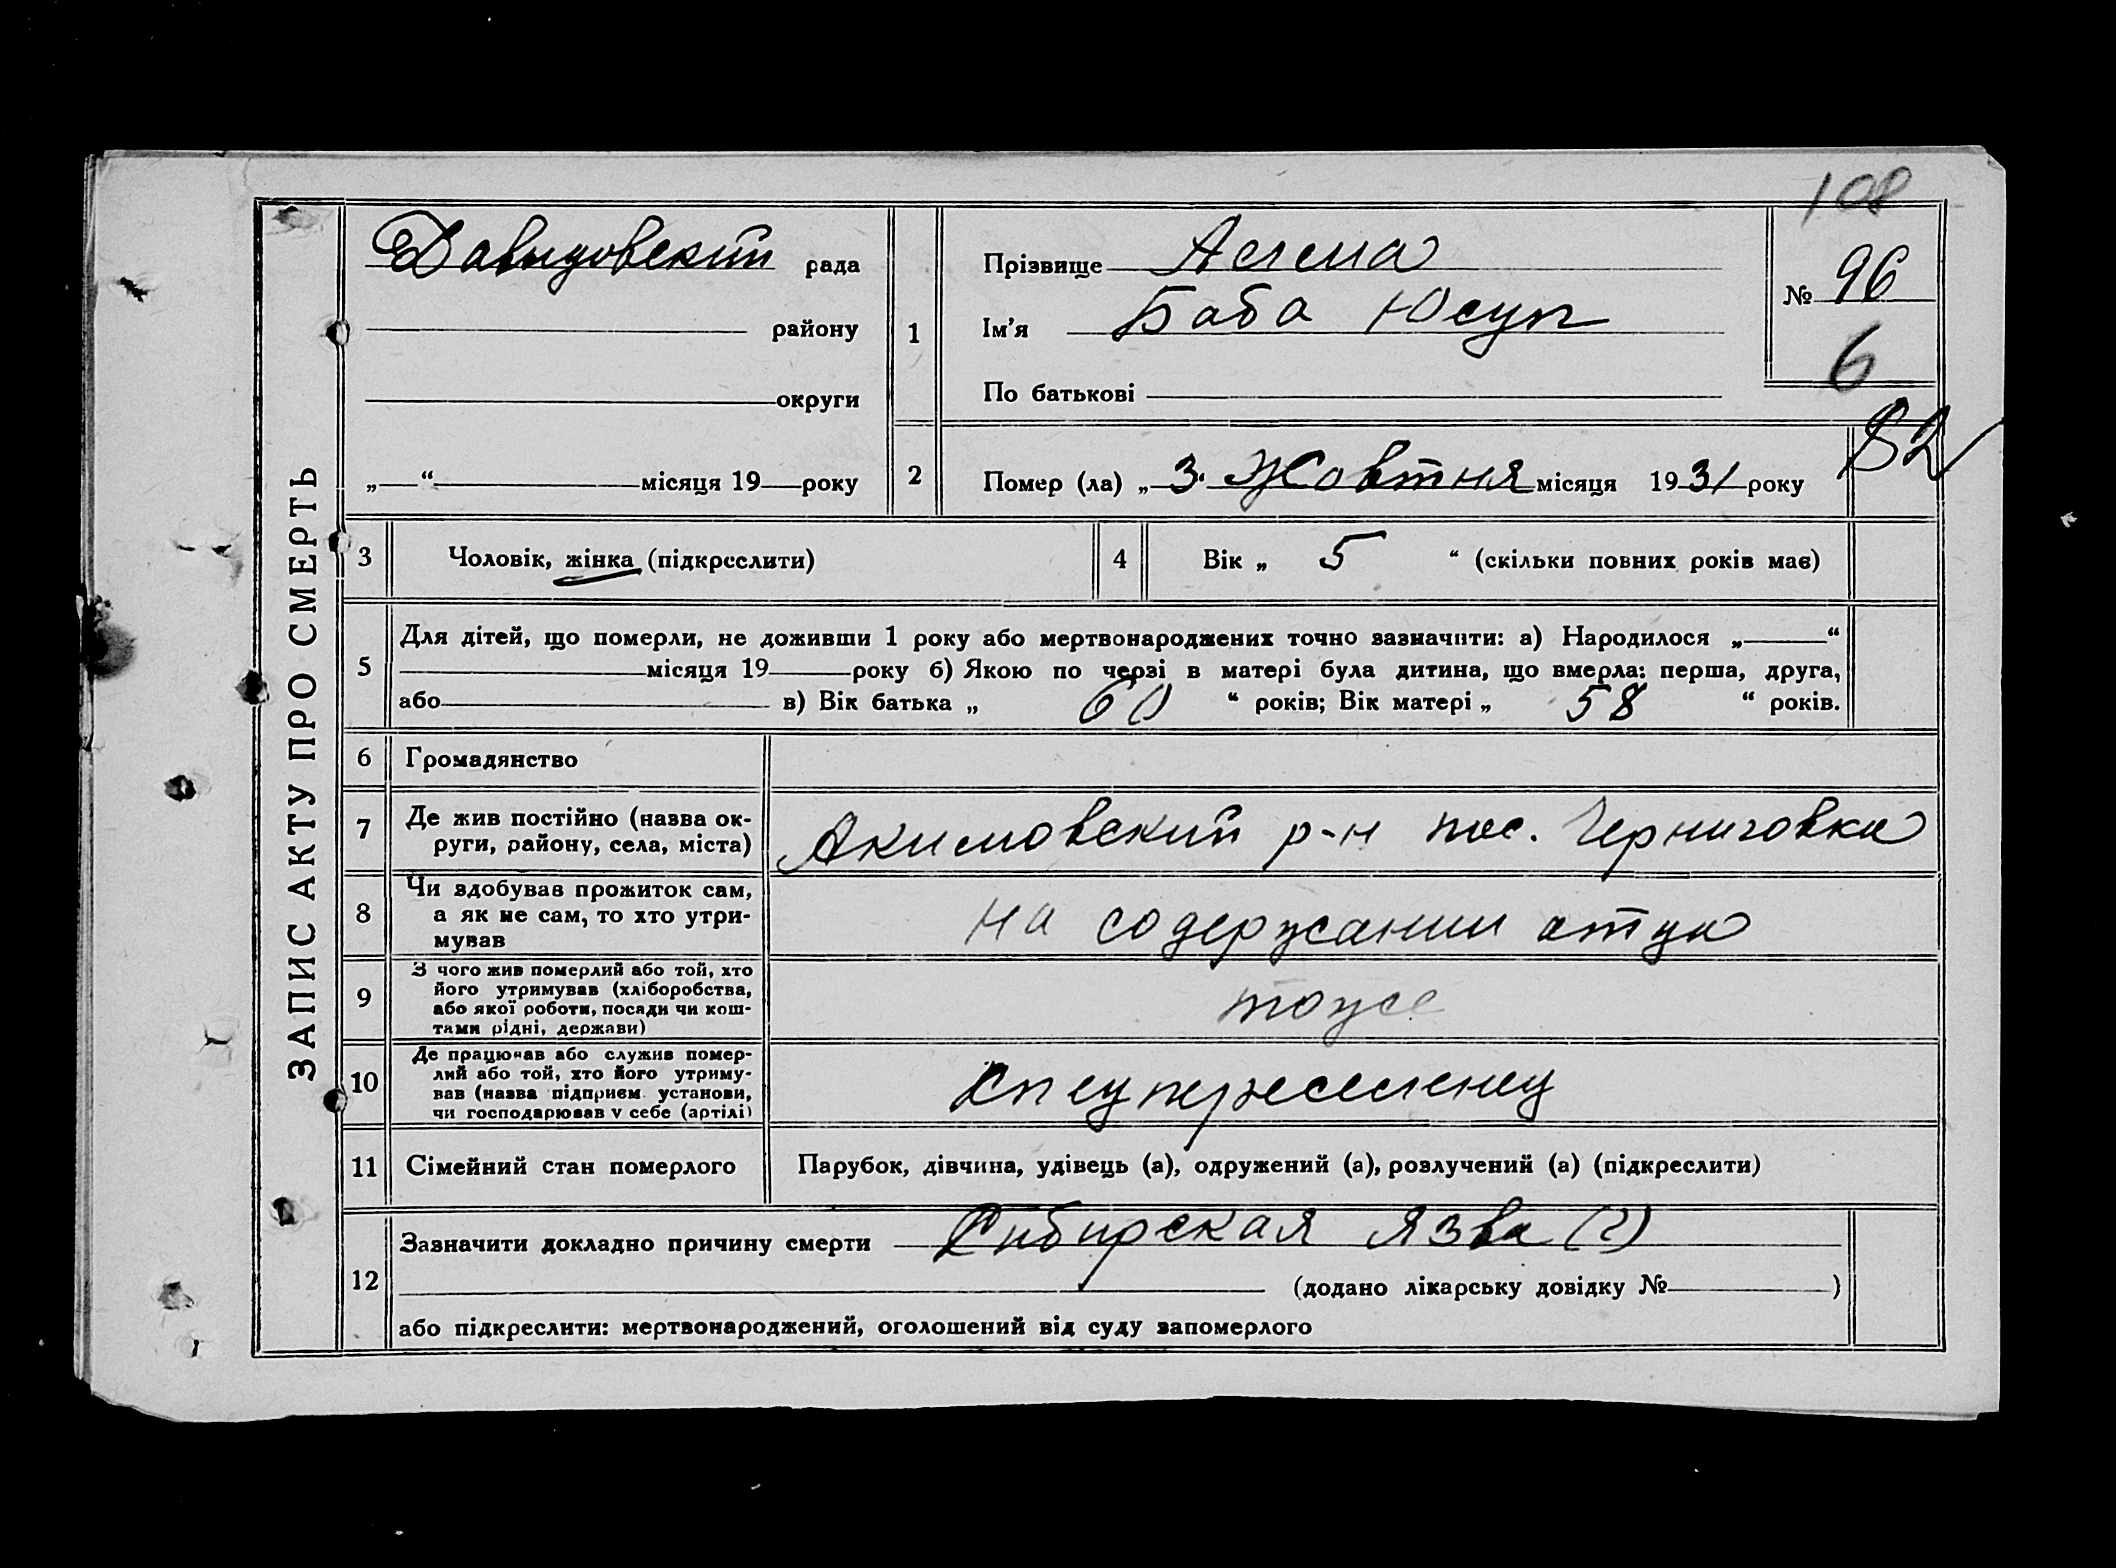 108
ЗАПИС АКТУ ПРО СМЕРТЬ
Давидовский рада
району
округи
„ “ місяця 19 року
1
Прізвище
Ім’я Баба Юсуп
По батькові
№ 96
6
82
2
Помер (ла) „ 3. Жовтня місяця 1931 року
3
Чоловік, жінка (підкреслити)
4
Вік „ 5 “ (скільки повних років має)
5
Для дітей, що померли, не доживши 1 року або мертвонароджених точно зазначити: а) Народилося „ “
місяця 19 року б) Якою по черзі в матері була дитина, що вмерла: перша, друга,
або в) Вік батька „ 60 “ років; Вік матері „ 58 “ років.
6
Громадянство
7
Де жив постійно (назва ок-
руги, району, села, міста)
Акимовский р-н пос. Черниговка
8
Чи здобував прожиток сам,
а як не сам, то хто утри-
мував
на содержании отца
9
З чого жив померлий або той, хто
його утримував (хліборобства,
або якої роботи, посади чи кош-
тами рідні, держави)
тоже
10
Де працював або служив помер-
лий або той, хто його утриму-
вав (назва підприєм. установи,
чи господарював у себе (артілі)
спецпереселенец
11
Сімейний стан померлого
Парубок, дівчина, удівець (а), одружений (а), розлучений (а) (підкреслити)
12
Зазначити докладно причину смерти Сибирская язва (?)
(додано лікарську довідку № )
або підкреслити: мертвонароджений, оголошений від суду запомерлого